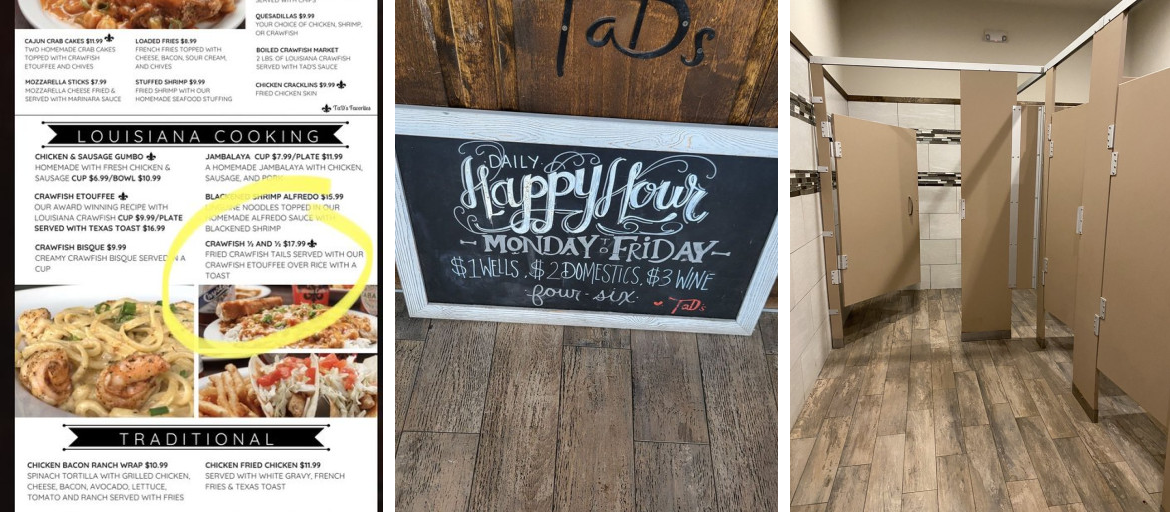 SERVED WITH CHIPS
QUESADILLAS $9.99
YOUR CHOICE OF CHICKEN, SHRIMP,
OR CRAWFISH
CAJUN CRAB CAKES $11.99
TWO HOMEMADE CRAB CAKES
TOPPED WITH CRAWFISH
ETOUFFEE AND CHIVES
LOADED FRIES $8.99
FRENCH FRIES TOPPED WITH
CHEESE, BACON, SOUR CREAM,
AND CHIVES
BOILED CRAWFISH MARKET
2 LBS. OF LOUISIANA CRAWFISH
SERVED WITH TAD'S SAUCE
MOZZARELLA STICKS $7.99
MOZZARELLA CHEESE FRIED &
SERVED WITH MARINARA SAUCE
STUFFED SHRIMP $9.99
FRIED SHRIMP WITH OUR
HOMEMADE SEAFOOD STUFFING
CHICKEN CRACKLINS $9.99
FRIED CHICKEN SKIN
TaD's Favorites
LOUISIANA COOKING
CHICKEN & SAUSAGE GUMBO
HOMEMADE WITH FRESH CHICKEN &
SAUSAGE CUP $6.99/BOWL $10.99
CRAWFISH ETOUFFEE
OUR AWARD WINNING RECIPE WITH
LOUISIANA CRAWFISH CUP $9.99/PLATE
SERVED WITH TEXAS TOAST $16.99
CRAWFISH BISQUE $9.99
CREAMY CRAWFISH BISQUE SERVED IN A
CUP
JAMBALAYA CUP $7.99/PLATE $11.99
A HOMEMADE JAMBALAYA WITH CHICKEN,
SAUSAGE, AND PORK
BLACKENED SHRIMP ALFREDO $15.99
LINGUINE NOODLES TOPPED IN OUR
HOMEMADE ALFREDO SAUCE WITH
BLACKENED SHRIMP
CRAWFISH ½ AND ½ $17.99
FRIED CRAWFISH TAILS SERVED WITH OUR
CRAWFISH ETOUFFEE OVER RICE WITH A
TOAST
TRADITIONAL
CHICKEN BACON RANCH WRAP $10.99
SPINACH TORTILLA WITH GRILLED CHICKEN,
CHEESE, BACON, AVOCADO, LETTUCE,
TOMATO AND RANCH SERVED WITH FRIES
CHICKEN FRIED CHICKEN $11.99
SERVED WITH WHITE GRAVY, FRENCH
FRIES & TEXAS TOAST
TaDs
DAILY
Happy Hour
MONDAY TO FRIDAY
$1 WELLS. $2 DOMESTICS. $3 WINE
four-six
TaD's